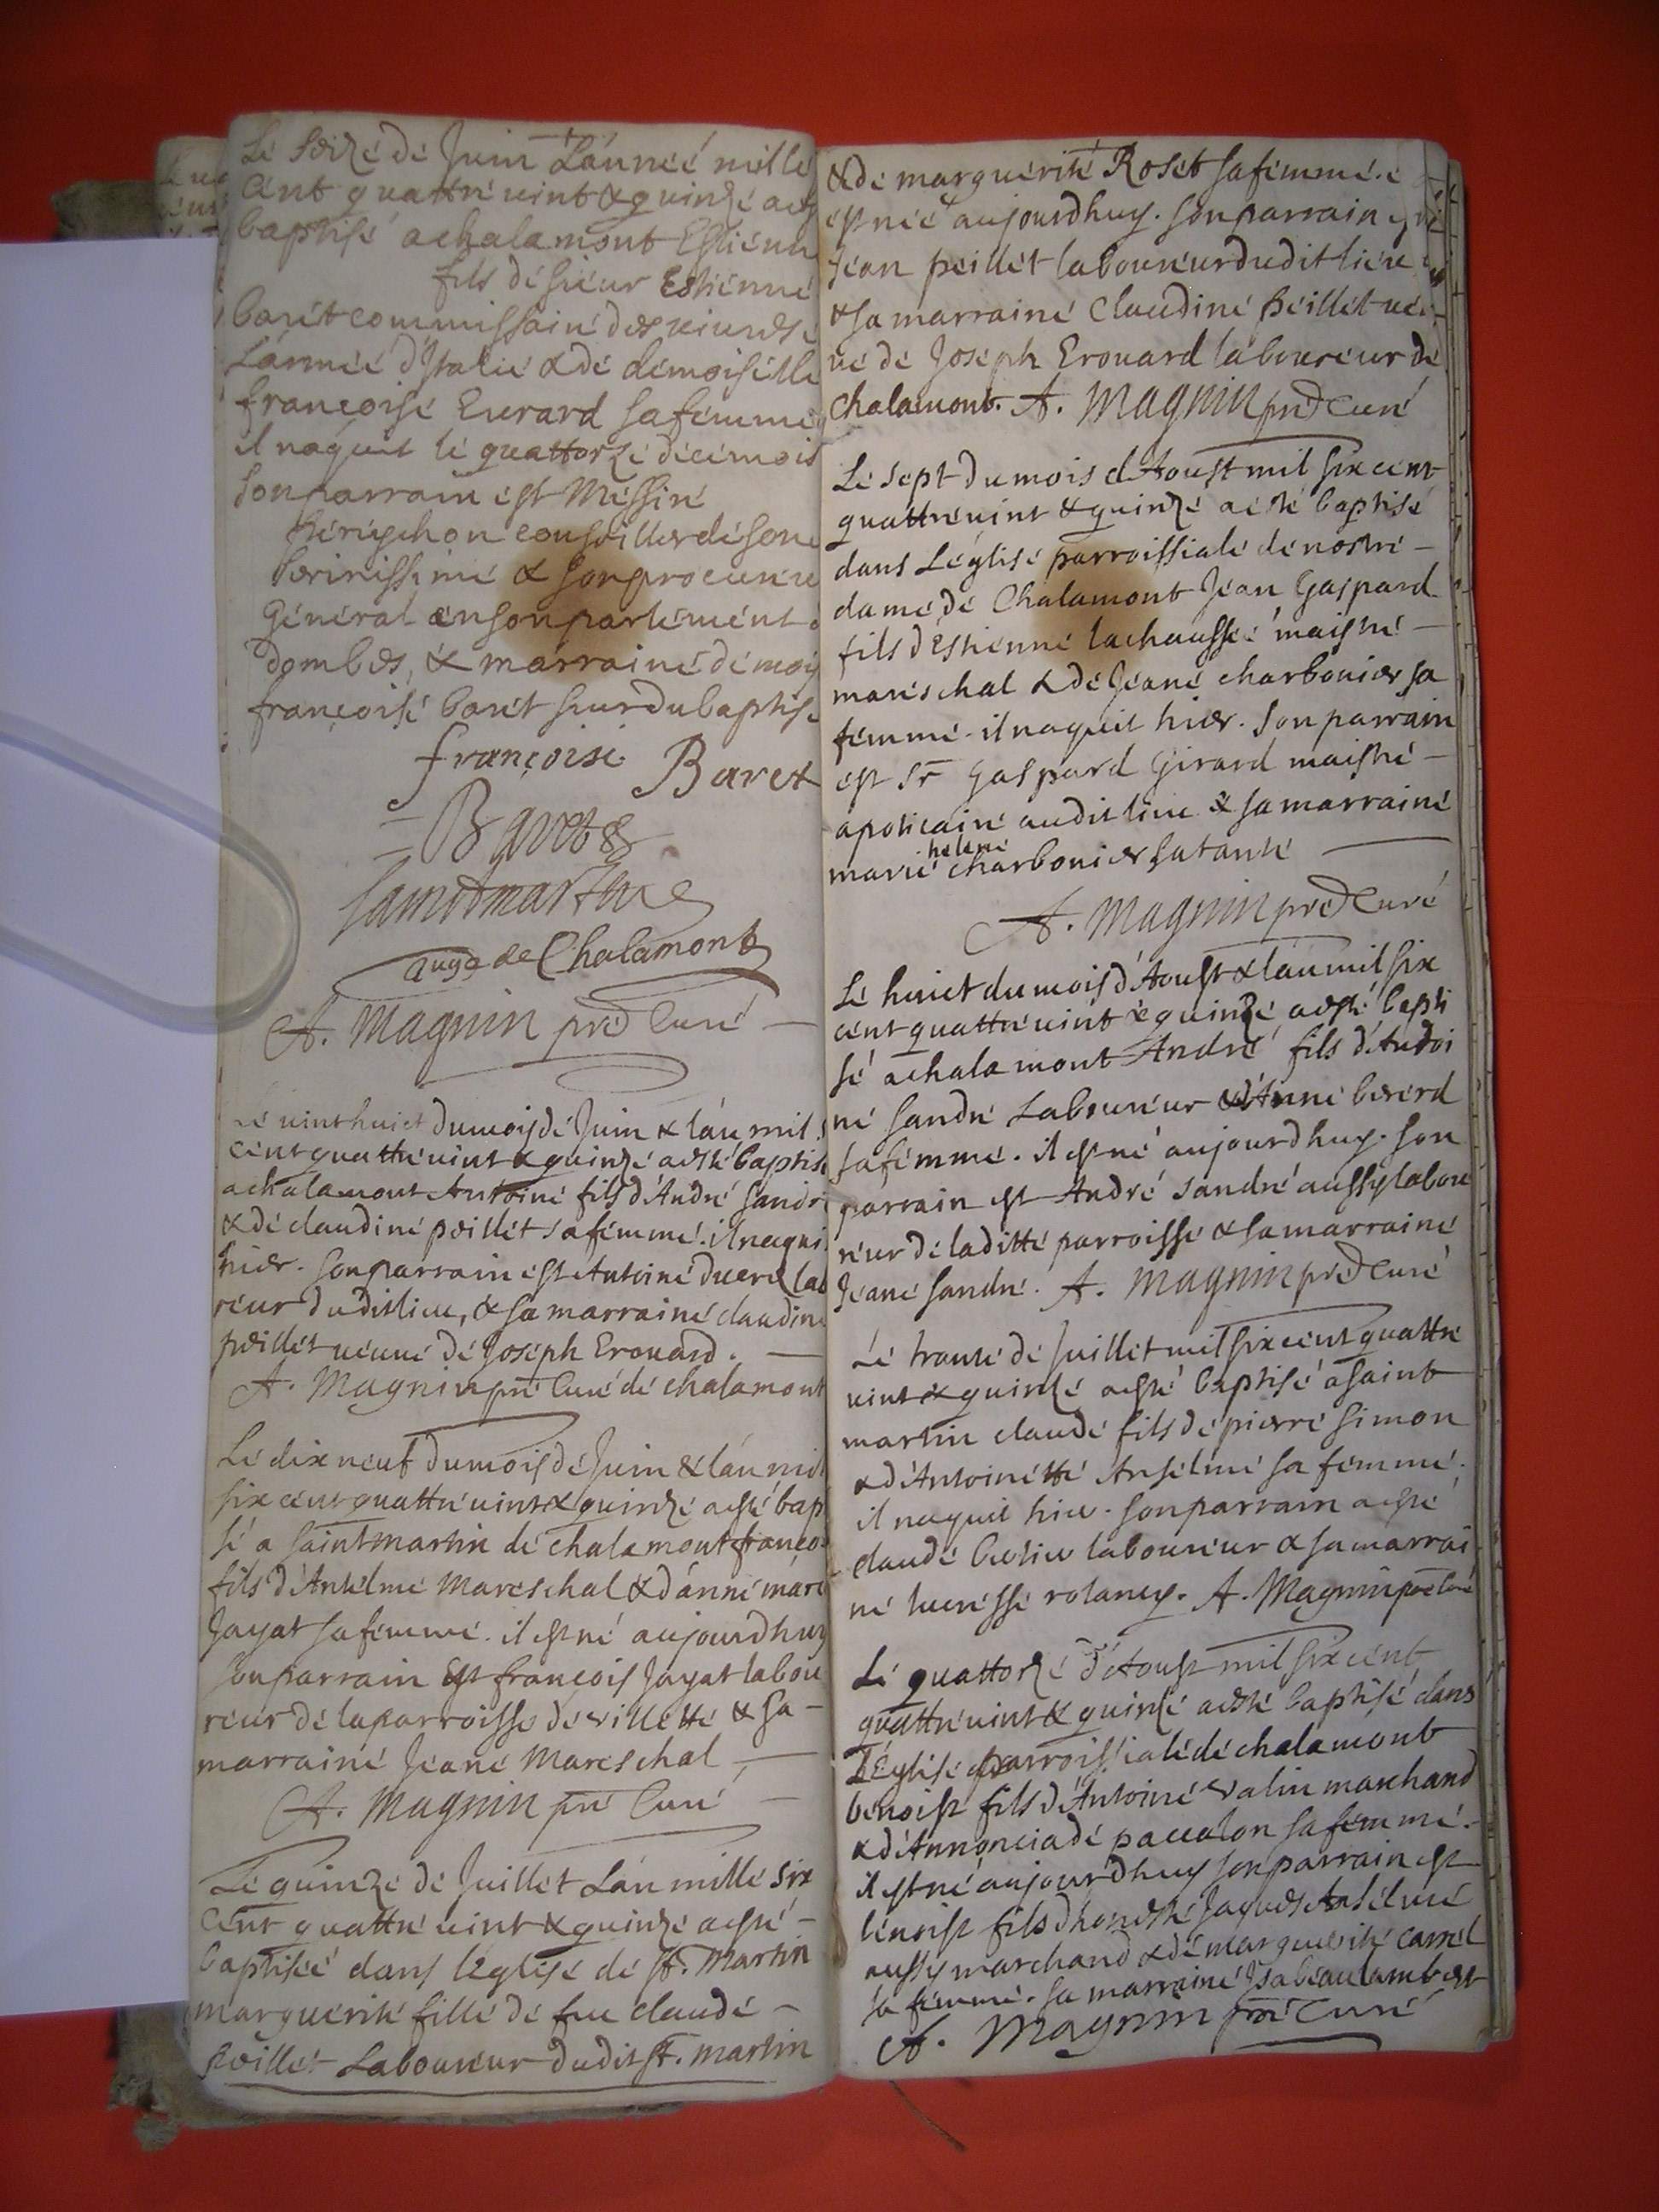 Le seize de Juin L'année mille
cent quattre vint & quinze a esté
baptisé a chalamont Estienne
fils de sieur Estienne
baret commissaire des vivres
L'armée d'Italie & de demoiselle
françoise Eurard sa femme
il naquit le quattorze de ce mois
son parrain est Messire
perrichon conseiller de son
serenissime & son procureur
Général en son parlement
dombes, & marraine demois
françoise baret seur du baptisé
françoise Baret
A. Magnin pre Curé
Le vint huict du mois de Juin & l'an mil
cent quattre vint & quinze a esté baptisé
a chalamont Antoine fils d'André sandr
& de claudine peillet sa femme. il naqui
hier. son parrain est Antoine lab
reur dudit lieu, & sa marraine claudine
peillet veuve de Joseph Erouard.
A. Magnin pre Curé de chalamont
Le dix neuf du mois de Juin & l'an mil
six cent quattre vint & quinze a esté bap
sé a saint martin de chalamont franço
fils d'Antelme Mareschal & d'anne marie
Jayat sa femme. il est né aujourdhuy
son parrain Est françois Jayat labou
reur de la parroisse de villette & sa
marraine Jeane Mareschal
A. Magnin pre Curé
Le quinze de Juillet L'an mille six
cent quattre vint & quinze a esté
baptiseé dans l'Eglise de st. Martin
marguerite fille de feu claude
peillet Laboureur dudit st. martin
& de marguerite Roset sa femme. e
est neé aujourdhuy. son parrain est
Jean peillet laboureur dudit lieu
& sa marraine Claudine peillet veu
ve de Joseph Erouard laboureur de
Chalamont. A. Magnin pre Curé
Le sept du mois d'Aoust mil six cent
quattre vint & quinze a esté baptisé
dans L'église parroissiale de nostre
dame de Chalamont Jean Gaspard
fils d'Estienne lachaussée maistre
mareschal & de Jeane charbonier sa
femme. il naquit hier. son parrain
est Sr Gaspard Girard maistre
apoticaire audit lieu & sa marraine
helene
marie charbonier sa tante
A. Magnin pre Curé
Le huict du mois d'Aoust & l'an mil six
cent quattre vint & quinze a esté bapti
sé a chalamont André fils d'Antoi
ne sandre Laboureur & d'Anne bererd
sa femme. il est né aujourdhuy. son
parrain est André sandré aussy labou
reur de laditte parroisse & sa marraine
Jeane sandre. A. Magnin pre Curé
Le trante de Juillet mil six cent quattre
vint & quinze a esté baptisé a saint
martin claude fils de pierre simon
& d'Antoinette Anselme sa femme.
il naquit hier. son parrain a esté
claude laboureur & sa marrai
ne lucresse rolancy. A. Magnin pre Curé
Le quattorze d'Aoust mil six cent
quattre vint & quinze a esté baptisé dans
L'Eglise parroissiale de chalamont
benoist fils d'Antoine valin marchand
& d'Annonciade paccalon sa femme.
il est né aujourdhuy son parrain est
benoist fils d'honeste Jaques Anselme
aussy marchand & de marguerite carrel
sa femme. sa marraine Isabeau lambert
A. Magnin pre Curé